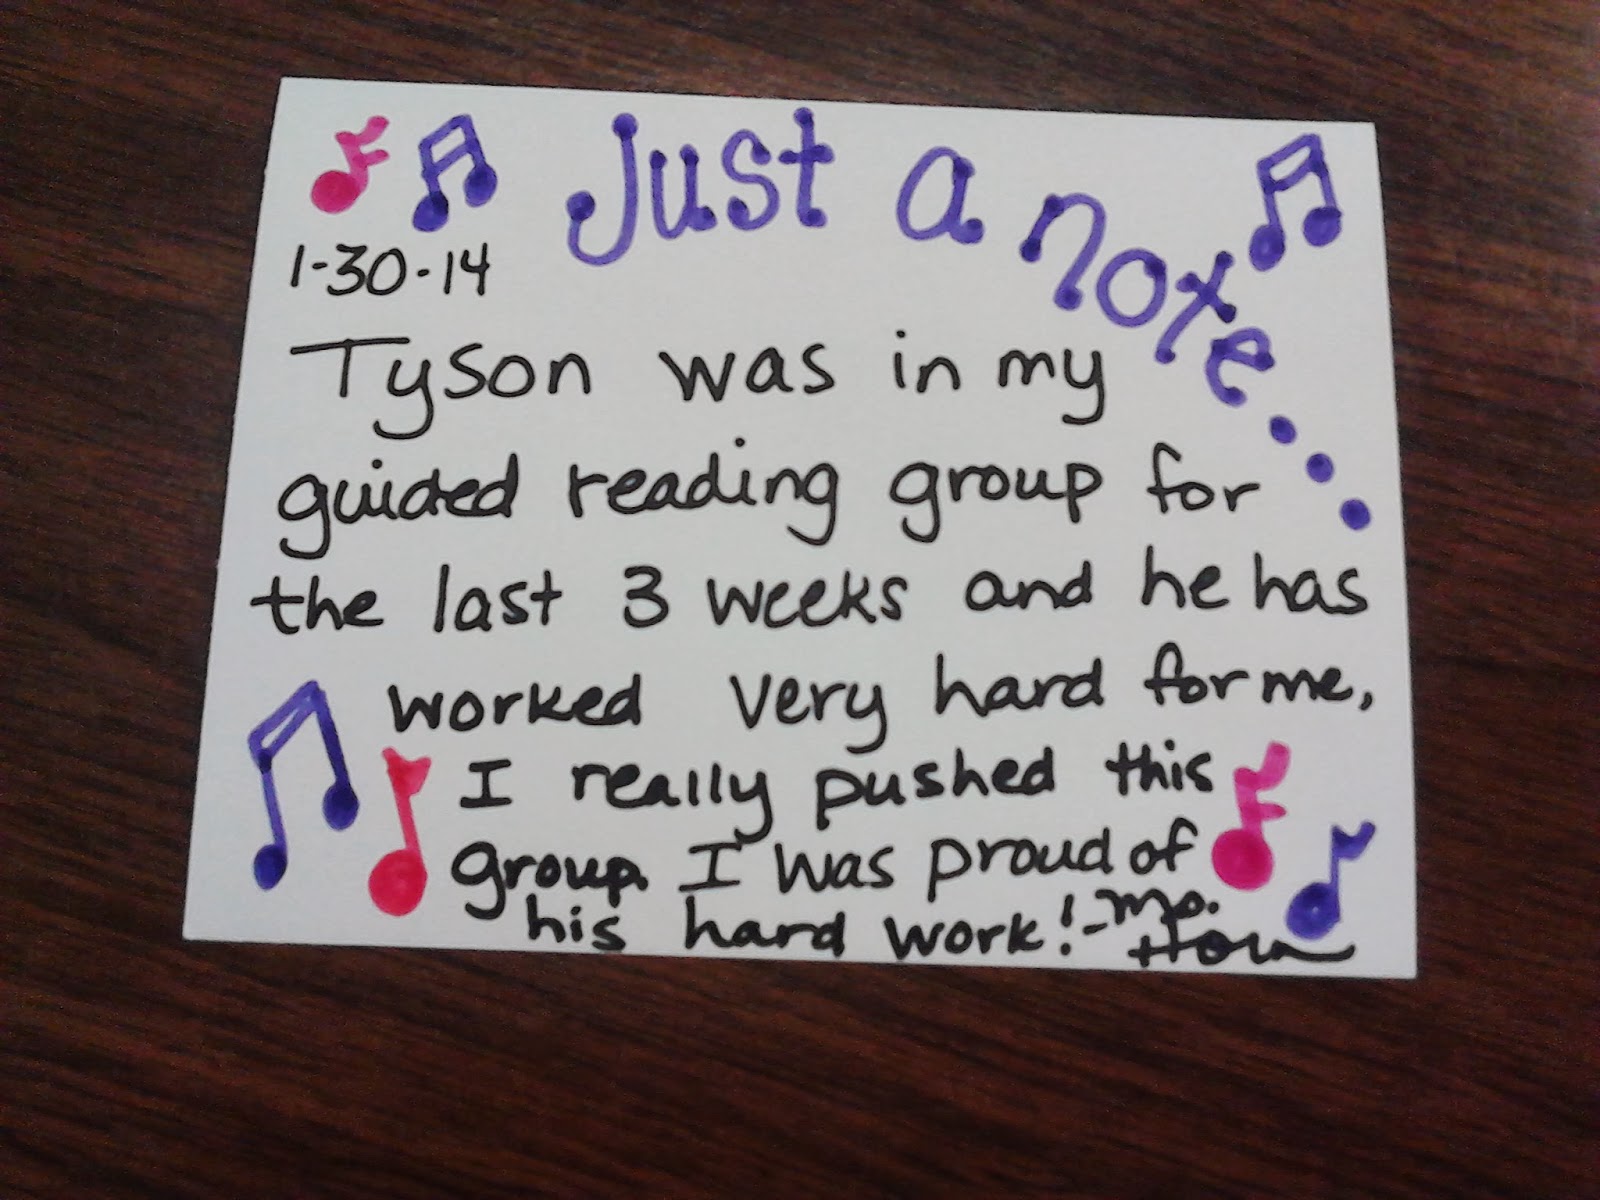 Just a note...
1-30-14
Tyson was in my
guided reading group for
the last 3 weeks and he has
worked very hard for me,
I really pushed this
group. I was proud of
his hard work! -